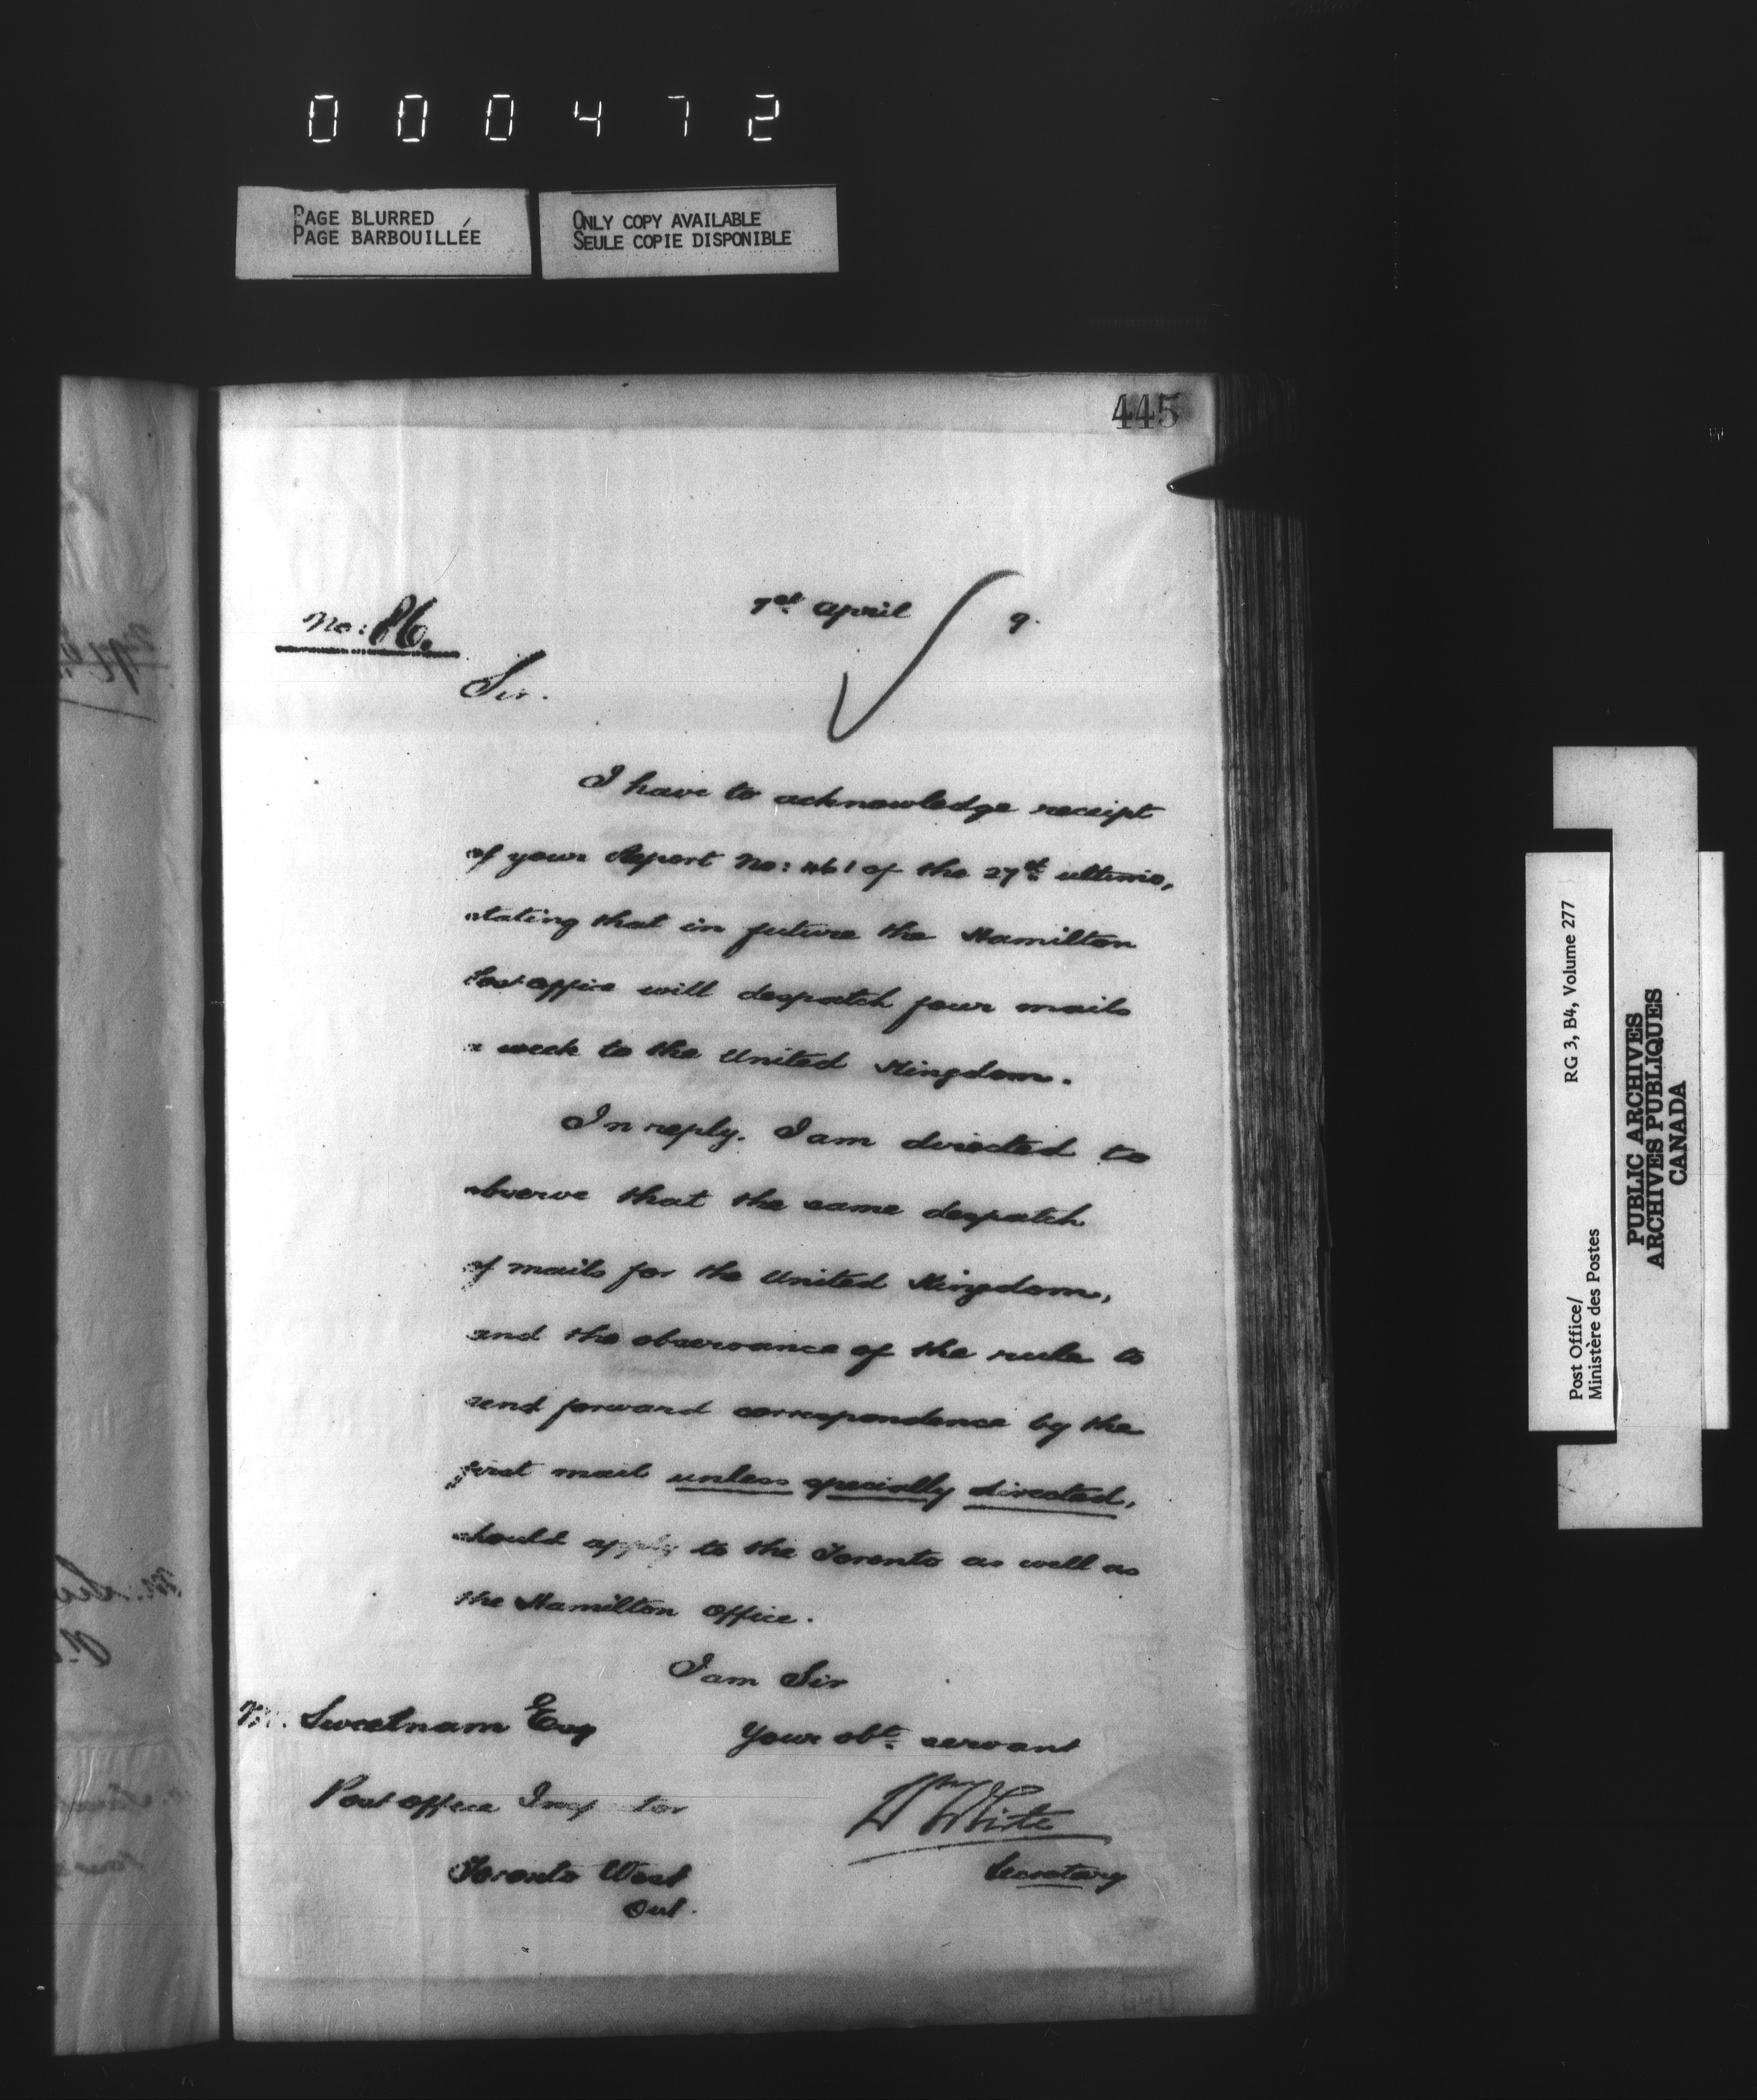 000472
PAGE BLURRED
PAGE BARBOUILLÉE
ONLY COPY AVAILABLE
SEULE COPIE DISPONIBLE
445
No: 86.
April 9.
Sir.
I have to acknowledge receipt
of your Report No: 461 of the 27th ultimo,
stating that in future the Hamilton
Post office will despatch four mails
a week to the United Kingdom.
In reply, I am directed to
observe that the same despatch
of mails for the United Kingdom,
and the observance of the rule to
send forward correspondence by the
first mail unless specially directed,
should apply to the Toronto as well as
the Hamilton Office.
I am Sir
M. Sweetnam Esq
Your obt. servant
Post office Inspector
Wm White
Secretary
Toronto West
Ont.
Post Office/
Ministère des Postes
RG 3, B4, Volume 277
PUBLIC ARCHIVES
ARCHIVES PUBLIQUES
CANADA